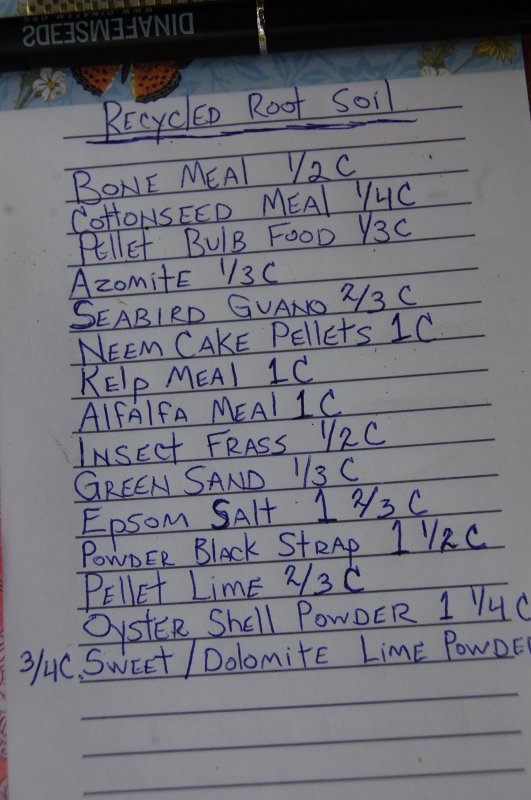 DINAFEMSEEDS
RECYCLED ROOT SOIL
BONE MEAL 1/2 C
COTTONSEED MEAL 1/4C
PELLET BULB FOOD 1/3C
AZOMITE 1/3C
SEABIRD GUANO 2/3 C
NEEM CAKE PELLETS 1C
KELP MEAL 1C
ALFALFA MEAL 1C
INSECT FRASS 1/2C
GREEN SAND 1/3 C
EPSOM SALT 1 2/3 C
POWDER BLACK STRAP 1 1/2 C
PELLET LIME 2/3 C
OYSTER SHELL POWDER 1 1/4 C
3/4C. SWEET/DOLOMITE LIME POWDE